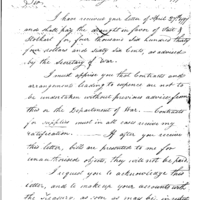 I have received your letter of April 27th 1799
and shall pay the draught in favor of Hall &
for four thousand six hundred thirty
four dollars and sixty six Cents, as advised
by the Secretary of War.
I must apprise you that Contracts and
arrangements leading to expense are not to
be undertaken without previous advice from
this or the Department of War. Contracts
for supplies must in all cases receive my
ratification. If after you receive
this letter, bills are presented to me for
unauthorised objects, they will not be paid.
I request you to acknowledge this
letter, and to make up your accounts with
the Treasury as soon as may be